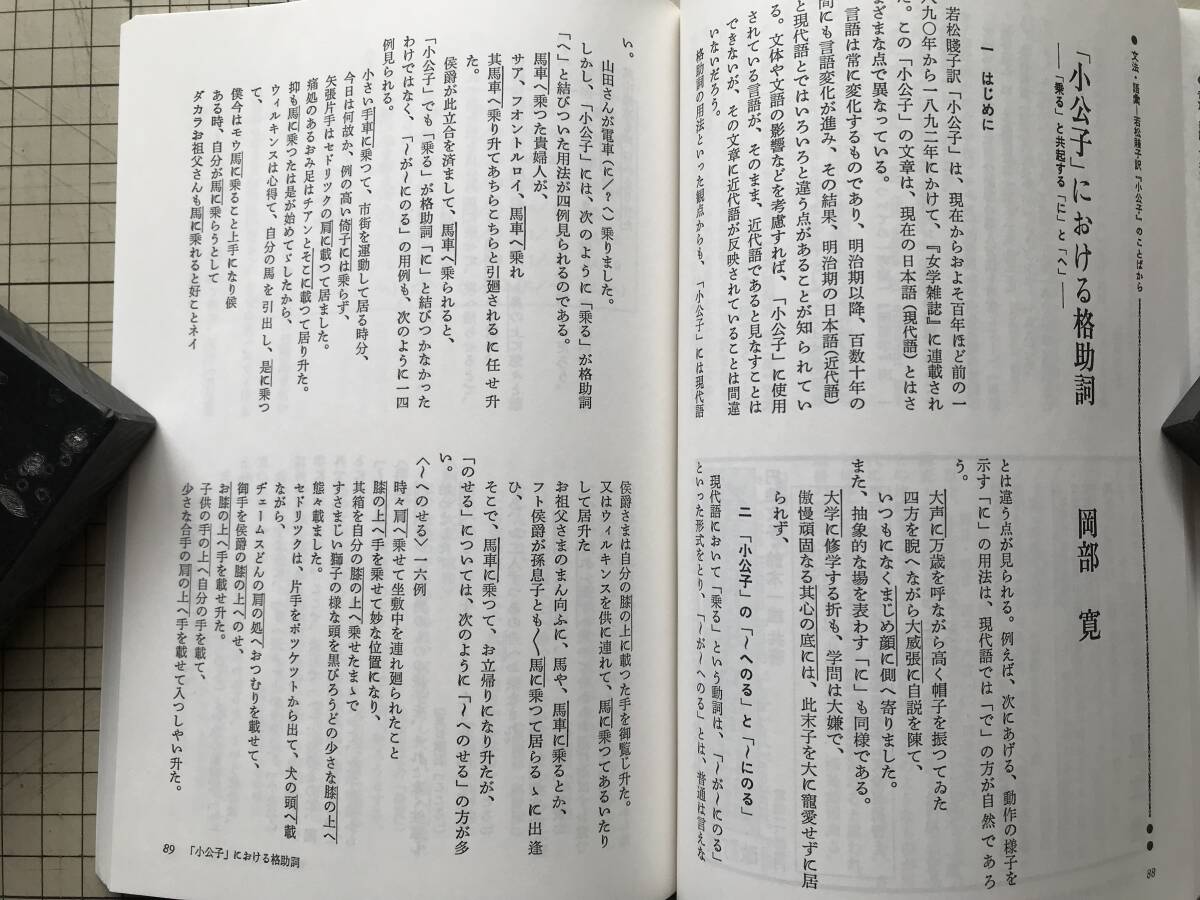 ●文法・語彙―若松賤子訳『小公子』のことばから
「小公子」における格助詞
――「乗る」と共起する「に」と「へ」――
岡部　寛
一　はじめに
若松賤子訳「小公子」は、現在からおよそ百年ほど前の一
八九〇年から一八九二年にかけて、『女学雑誌』に連載され
た。この「小公子」の文章は、現在の日本語（現代語）とはさ
まざまな点で異なっている。
言語は常に変化するものであり、明治期以降、百数十年の
間にも言語変化が進み、その結果、明治期の日本語（近代語）
と現代語とではいろいろと違う点があることが知られてい
る。文体や文語の影響などを考慮すれば、「小公子」に使用
されている言語が、そのまま、近代語であると見なすことは
できないが、その文章に近代語が反映されていることは間違
いないだろう。
格助詞の用法といった観点からも、「小公子」には現代語
とは違う点が見られる。例えば、次にあげる、動作の様子を
示す「に」の用法は、現代語では「で」の方が自然であろ
う。
大声に万歳を呼ながら高く帽子を振つてゐた
四方を睨へながら大威張に自説を陳て、
いつもになくまじめ顔に側へ寄りました。
また、抽象的な場を表わす「に」も同様である。
大学に修学する折も、学問は大嫌で、
傲慢頑固なる其心の底には、此末子を大に寵愛せずに居
られず、
二　「小公子」の「～へのる」と「～にのる」
現代語において「乗る」という動詞は、「～が～にのる」
といった形式をとり、「～が～へのる」とは、普通は言えな
88
い。
山田さんが電車（に／？へ）乗りました。
しかし、「小公子」には、次のように「乗る」が格助詞
「へ」と結びついた用法が四例見られるのである。
馬車へ乗つた貴婦人が、
サア、フオントルロイ、馬車へ乗れ
其馬車へ乗り升てあちらこちらと引廻されるに任せ升
た。
侯爵が此立合を済まして、馬車へ乗られると、
「小公子」でも「乗る」が格助詞「に」と結びつかなかった
わけではなく、「～が～にのる」の用例も、次のように一四
例見られる。
小さい手車に乗つて、市街を運動して居る時分、
今日は何故か、例の高い倚子には乗らず、
矢張片手はセドリツクの肩に載つて居ました。
痛処のあるおみ足はチアンとそこに載つて居り升た。
抑も馬に乗つたは是が始めてゞしたから、
ウィルキンスは心得て、自分の馬を引出し、是に乗つ
て、
僕今はモウ馬に乗ること上手になり候
ある時、自分が馬に乗らうとして
ダカラお祖父さんも馬に乗れると好ことネイ
侯爵さまは自分の膝の上に載つた手を御覧じ升た。
又はウィルキンスを供に連れて、馬に乗つてあるいたり
して居升た
お祖父さまのまん向ふに、馬や、馬車に乗るとか、
フト侯爵が孫息子とも〱馬に乗つて居らるゝに出逢
ひ、
そこで、馬車に乗つて、お立帰りになり升たが、
「のせる」については、次のように「～へのせる」の方が多
い。
〈～へのせる〉一六例
時々肩へ乗せて坐敷中を連れ廻られたこと
膝の上へ手を乗せて妙な位置になり、
其箱を自分の膝の上へ乗せたまゝで
すさまじい獅子の様な頭を黒びろうどの少さな膝の上へ
態々載ました。
セドリツクは、片手をポツケツトから出て、犬の頭へ載
ながら、
ヂェームスどんの肩の処へおつむりを載せて、
御手を侯爵の膝の上へのせ、
お膝の上へ手を載せ升た。
子供の手の上へ自分の手を載て、
少さな合手の肩の上へ手を載せて入つしやい升た。
89　「小公子」における格助詞